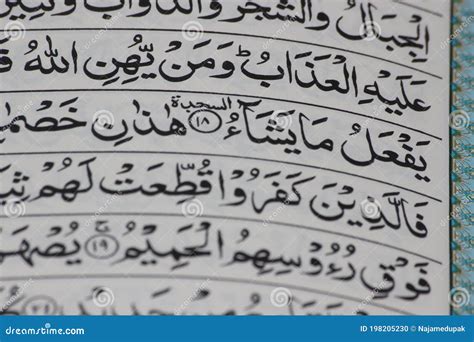 الْجِبَالُ وَالشَّجَرُ وَالدَّوَآبُّ
عَلَيْهِ الْعَذَابُ ؕ وَمَنْ يُّهِنِ اللّٰهُ
يَفْعَلُ مَا يَشَآءُ ۱۸ السجدة هٰذٰنِ
فَالَّذِيْنَ كَفَرُوْا قُطِّعَتْ لَهُمْ
فَوْقِ رُءُوْسِهِمُ الْحَمِيْمُ ۱۹
dreamstime.com
ID 198205230 © Najamedupak